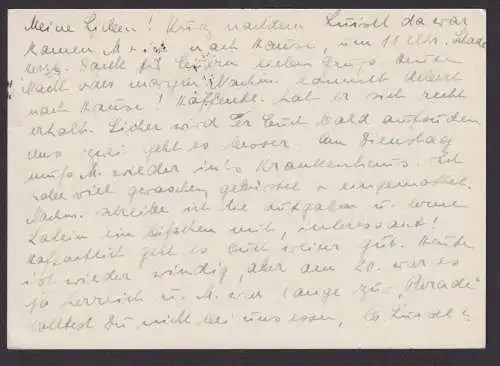 Meine Lieben! Kurz nachdem Luisel da war
kamen M. nach Hause, um 11 Uhr. Schade
Herzl. Dank für Euern lieben Gruß. Heute
Nacht oder morgen Nachm. kommt Hubert
nach Hause! Hoffentl. hat er sich recht
erholt. Sicher wird Er Euch bald aufsuchen
Uns zwei geht es besser. Am Dienstag
muß M. wieder ins Krankenhaus. Ich
habe viel gewaschen, gebüstelt u eingemottet.
Nachm. schreibe ich die Aufgaben u. lerne
Latein ein bißchen mit, interessant!
Hoffentlich geht es Euch weiter gut. Heute
ist wieder windig, aber am 20. war es
ja herrlich u. M. war lange zur "Parade"
solltest Du nicht bei uns essen, lb. Luisel?